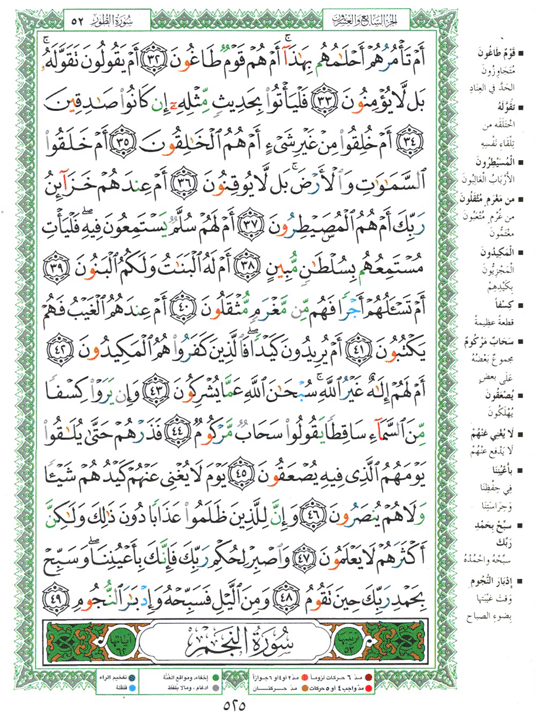 سُورَةُ الطُّورِ ٥٢
الجزء السابع والعشرون
أَمۡ تَأۡمُرُهُمۡ أَحۡلَٰمُهُم بِهَٰذَآۚ أَمۡ هُمۡ قَوۡمٞ طَاغُونَ ٣٢ أَمۡ يَقُولُونَ تَقَوَّلَهُۥۚ
بَل لَّا يُؤۡمِنُونَ ٣٣ فَلۡيَأۡتُواْ بِحَدِيثٖ مِّثۡلِهِۦٓ إِن كَانُواْ صَٰدِقِينَ
٣٤ أَمۡ خُلِقُواْ مِنۡ غَيۡرِ شَيۡءٍ أَمۡ هُمُ ٱلۡخَٰلِقُونَ ٣٥ أَمۡ خَلَقُواْ
ٱلسَّمَٰوَٰتِ وَٱلۡأَرۡضَۚ بَل لَّا يُوقِنُونَ ٣٦ أَمۡ عِندَهُمۡ خَزَآئِنُ
رَبِّكَ أَمۡ هُمُ ٱلۡمُصَۜيۡطِرُونَ ٣٧ أَمۡ لَهُمۡ سُلَّمٞ يَسۡتَمِعُونَ فِيهِۖ فَلۡيَأۡتِ
مُسۡتَمِعُهُم بِسُلۡطَٰنٖ مُّبِينٍ ٣٨ أَمۡ لَهُ ٱلۡبَنَٰتُ وَلَكُمُ ٱلۡبَنُونَ ٣٩
أَمۡ تَسۡـَٔلُهُمۡ أَجۡرٗا فَهُم مِّن مَّغۡرَمٖ مُّثۡقَلُونَ ٤٠ أَمۡ عِندَهُمُ ٱلۡغَيۡبُ فَهُمۡ
يَكۡتُبُونَ ٤١ أَمۡ يُرِيدُونَ كَيۡدٗاۖ فَٱلَّذِينَ كَفَرُواْ هُمُ ٱلۡمَكِيدُونَ ٤٢
أَمۡ لَهُمۡ إِلَٰهٌ غَيۡرُ ٱللَّهِۚ سُبۡحَٰنَ ٱللَّهِ عَمَّا يُشۡرِكُونَ ٤٣ وَإِن يَرَوۡاْ كِسۡفٗا
مِّنَ ٱلسَّمَآءِ سَاقِطٗا يَقُولُواْ سَحَابٞ مَّرۡكُومٞ ٤٤ فَذَرۡهُمۡ حَتَّىٰ يُلَٰقُواْ
يَوۡمَهُمُ ٱلَّذِي فِيهِ يُصۡعَقُونَ ٤٥ يَوۡمَ لَا يُغۡنِي عَنۡهُمۡ كَيۡدُهُمۡ شَيۡـٔٗا
وَلَا هُمۡ يُنصَرُونَ ٤٦ وَإِنَّ لِلَّذِينَ ظَلَمُواْ عَذَابٗا دُونَ ذَٰلِكَ وَلَٰكِنَّ
أَكۡثَرَهُمۡ لَا يَعۡلَمُونَ ٤٧ وَٱصۡبِرۡ لِحُكۡمِ رَبِّكَ فَإِنَّكَ بِأَعۡيُنِنَاۖ وَسَبِّحۡ
بِحَمۡدِ رَبِّكَ حِينَ تَقُومُ ٤٨ وَمِنَ ٱلَّيۡلِ فَسَبِّحۡهُ وَإِدۡبَٰرَ ٱلنُّجُومِ ٤٩
ترتيبها ٥٣ سُورَةُ النَّجْمِ آياتها ٦٢
■ قَوْمٌ طَاغُونَ
مُتَجَاوِزُونَ
الحَدَّ في العِنادِ
■ تَقَوَّلَهُ
اخْتَلَقَه من
تِلْقَاء نَفْسِهِ
■ الْمُسَيْطِرُونَ
الأَرْبَابُ الغَالِبُونَ
■ مِن مَغْرَمٍ مُثْقَلُون
من غُرْمٍ مُتْعَبُونَ
مُغْتَمُّونَ
■ الْمَكِيدُونَ
المَجْزِيُّونَ
بِكَيْدِهِمْ
■ كِسْفاً
قطعةً عظيمةً
■ سَحَابٌ مَرْكُومٌ
مجموعٌ بَعْضُهُ
عَلَى بعضٍ
■ يُصْعَقُونَ
يُهْلَكُونَ
■ لا يُغْنِي عَنْهُمْ
لا يَدْفَع عَنْهُمْ
■ بِأَعْيُنِنَا
في حِفْظِنَا
وحِرَاسَتِنَا
■ سَبِّحْ بِحَمْدِ
رَبِّكَ
سَبِّحْهُ واحْمَدْهُ
■ إِدْبَارَ النُّجُومِ
وَقْتَ غَيْبَتِها
بضوءِ الصباحِ
مدّ ٦ حركات لزوماً مدّ ٢ أو ٤ أو ٦ جوازاً إخفاء، ومواقع الغُنَّة تفخيم الراء
مدّ واجب ٤ أو ٥ حركات مدّ حركتان إدغام، وما لا يُلفظ قلقلة
٥٢٥